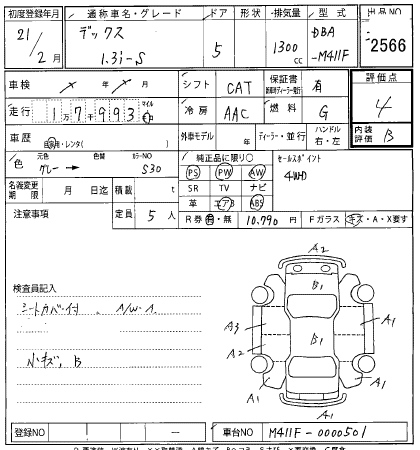 初度登録年月 通称車名・グレード ドア 形状 排気量 型式 出品NO
21/2月 デックス 1.3i-S 5 1300cc DBA-M411F 2566
車検 × 年 × 月 シフト CAT 保証書 有 評価点
走行 17千993 マイル km 冷房 AAC 燃料 G 4
車歴 自家用・レンタ( ) 外車モデル 年 ディーラー・並行 ハンドル 右・左 内装評価 B
色 元色 グレー → 色替 カラーNO S30 純正品に限り○ セールスポイント
PS PW AW 4WD
名義変更期限 月 日迄 積載 t SR TV ナビ
革 エアB ABS
注意事項 定員 5人 R券 有・無 10,790円 Fガラス キズ・A・X要す
検査員記入
シートカバー付 A/W A
小キズ, B
A2
B1
A3 B1 A1
A2
A1 A1
A1
登録NO 車台NO M411F-0000501